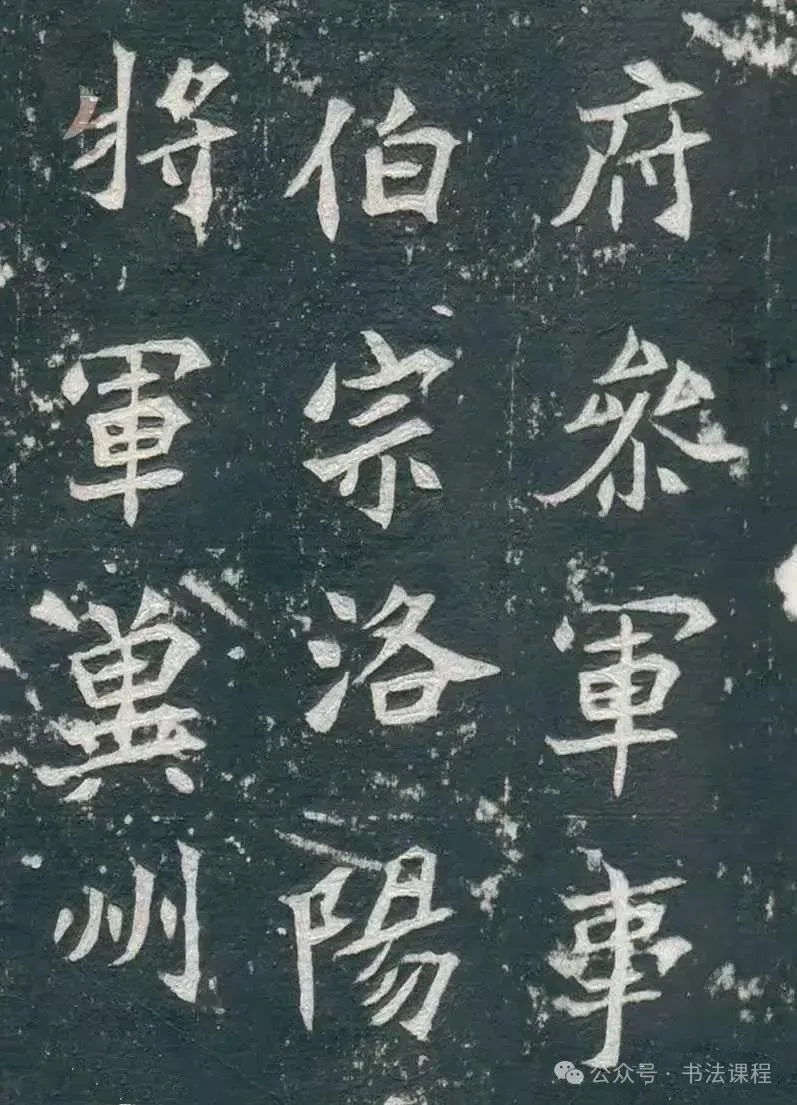 府叅軍事
伯宗洛陽
將軍兾州
公众号·书法课程